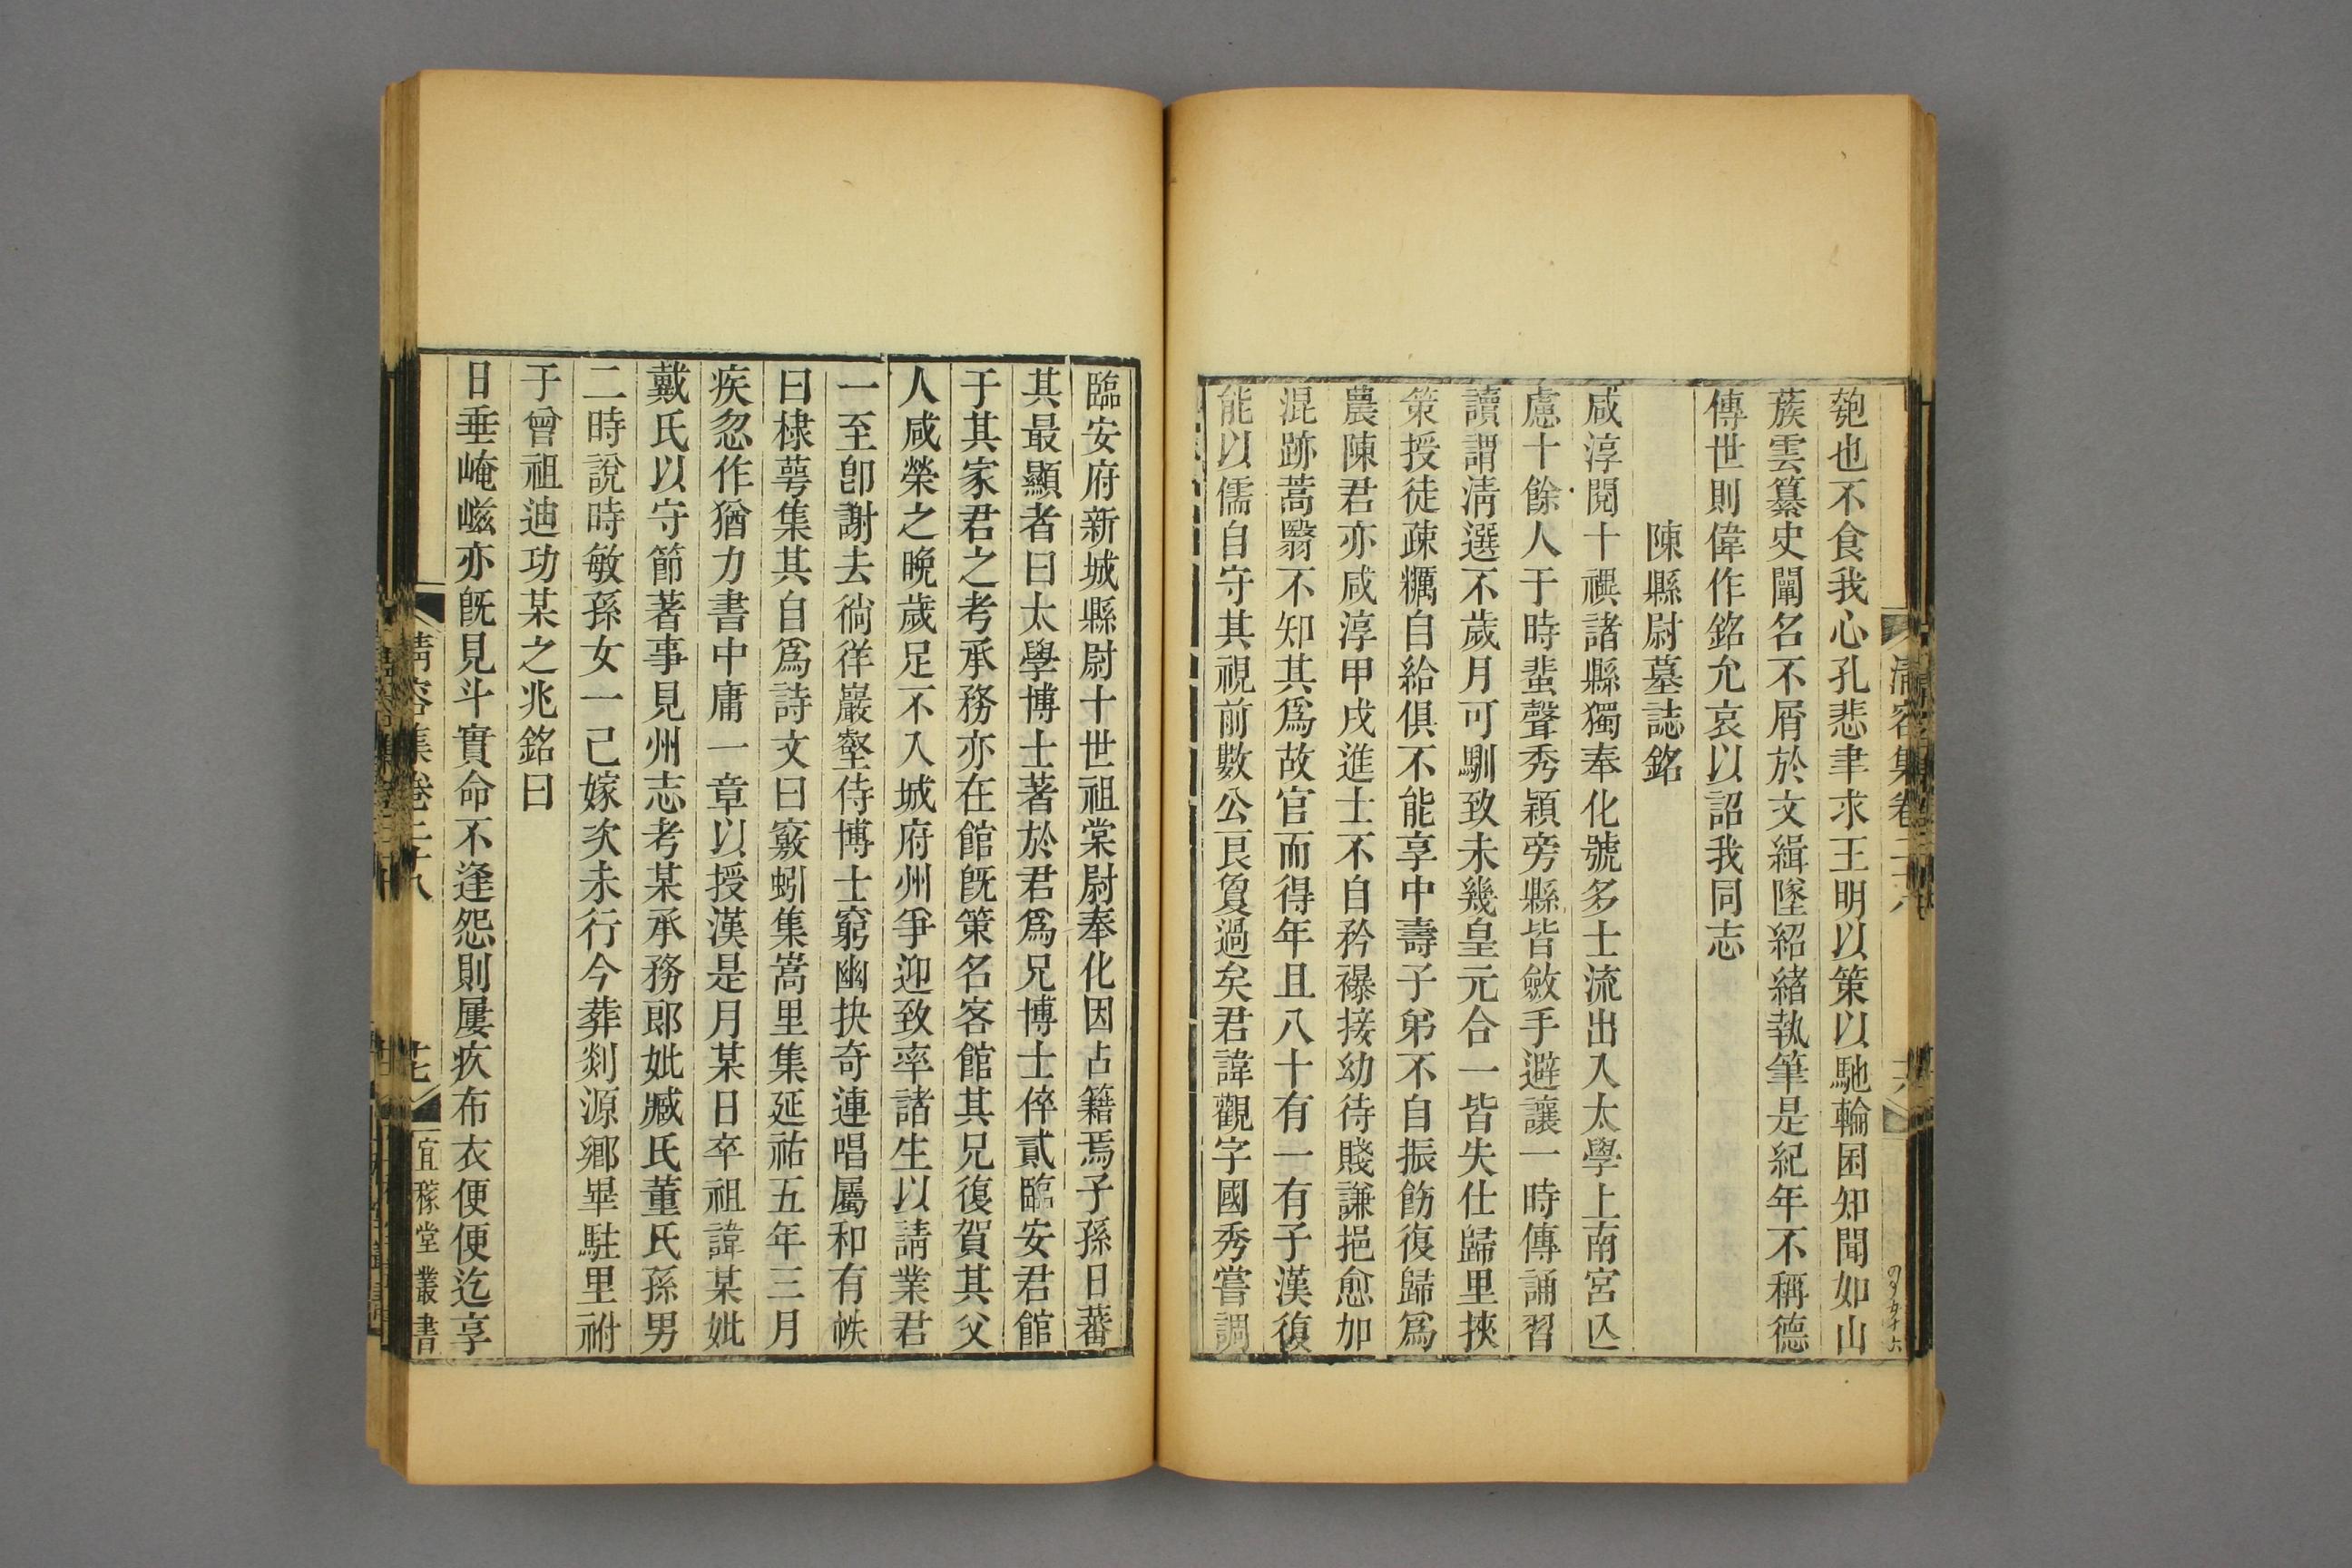 清容集卷二十八
十六
匏也不食我心孔悲聿求王明以策以馳輪囷知聞如山
蔟雲纂史闡名不屑於文緝墜紹緒執筆是紀年不稱德
傳世則偉作銘允哀以詔我同志
陳縣尉墓誌銘
咸淳閱十禩諸縣獨奉化號多士流出入太學上南宮亾
慮十餘人于時蜚聲秀穎旁縣皆斂手避讓一時傳誦習
讀謂淸選不歲月可馴致未幾皇元合一皆失仕歸里挾
策授徒疎糲自給俱不能享中壽子弟不自振飭復歸爲
農陳君亦咸淳甲戌進士不自矜襮接幼待賤謙挹愈加
混跡蒿翳不知其爲故官而得年且八十有一有子漢復
能以儒自守其視前數公良敻過矣君諱觀字國秀嘗調
臨安府新城縣尉十世祖棠尉奉化因占籍焉子孫日蕃
其最顯者曰太學博士著於君爲兄博士倅貳臨安君館
于其家君之考承務亦在館旣策名客館其兄復賀其父
人咸榮之晚歲足不入城府州爭迎致率諸生以請業君
一至卽謝去徜徉巖壑侍博士窮幽抉奇連唱屬和有帙
曰棣萼集其自爲詩文曰竅蚓集嵩里集延祐五年三月
疾忽作猶力書中庸一章以授漢是月某日卒祖諱某妣
戴氏以守節著事見州志考某承務郎妣臧氏董氏孫男
二時說時敏孫女一已嫁次未行今葬剡源鄉畢駐里祔
于曾祖迪功某之兆銘曰
日垂崦嵫亦旣見斗實命不逢怨則屢疚布衣便便迄享
清容集卷二十八
十七
宜稼堂叢書